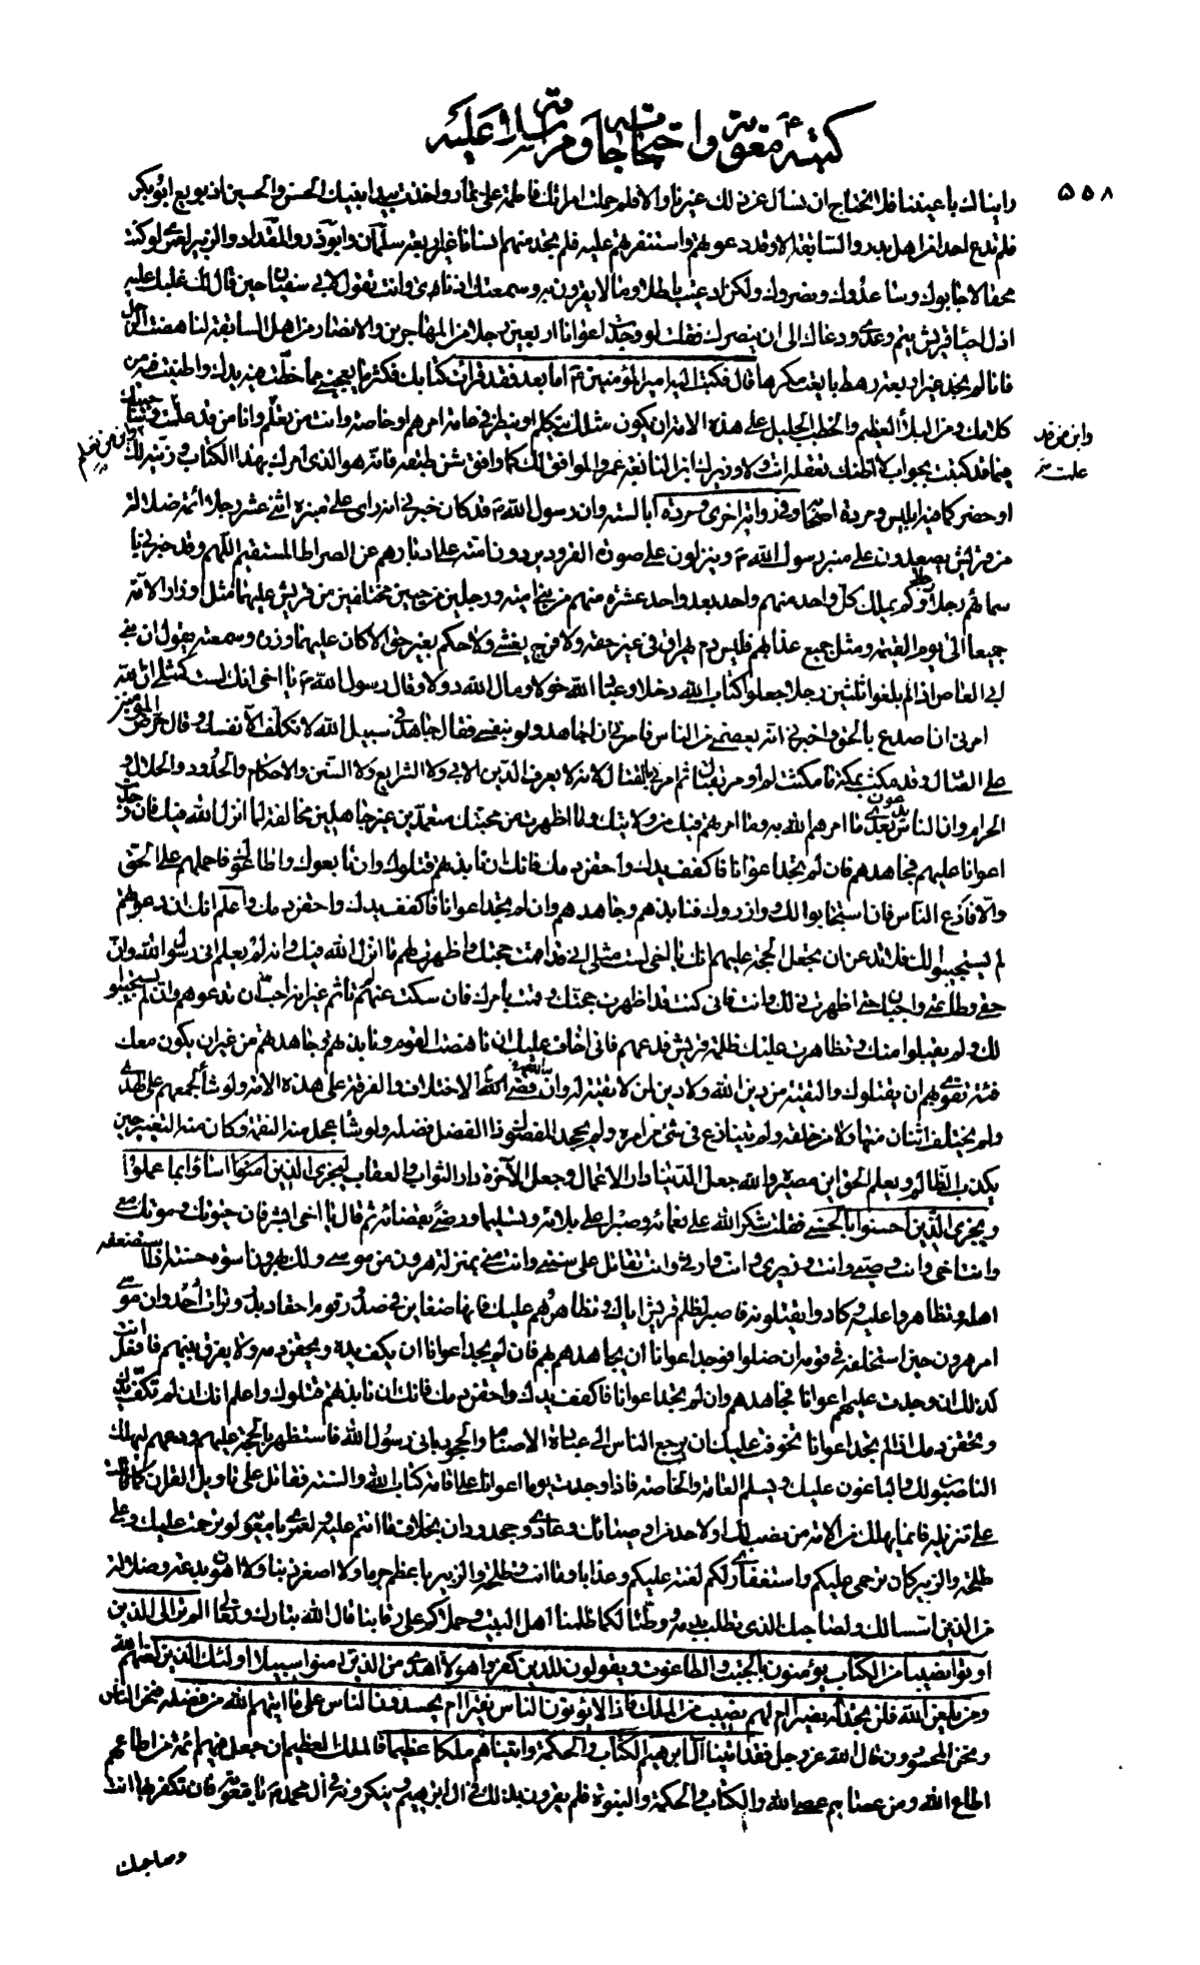 كتبه ع معوية واحتجاجاته ومراسلاته عليه
٥٥٨
رايناك باعيننا فلا نحتاج ان نسأل عن ذلك غيرنا والا فلم حملت امرأتك فاطمة على حمار واخذت بيد ابنيك الحسن والحسين اذ بويع ابو بكر
فلم تدع احدا من اهل بدر والسابقة الا وقد دعوتهم واستنفرتهم عليه فلم تجد منهم انسانا غير اربعة سلمان وابو ذر والمقداد والزبير لعمري لو كنت
محقا لاجابوك وساعدوك ونصروك ولكن ادعيت باطلا وما لا يقرون به وسمعتك اذناي وانت تقول لابي سفيان حين قال لك غلبك عليه
اذل احياء قريش تيم وعدي ودعاك الى ان ينصرك فقلت لو وجدت اعوانا اربعين رجلا من المهاجرين والانصار من اهل السابقة لناهضت الرجل
فلما لم تجد غير اربعة رهط بايعت مكرها قال فكتب اليه امير المؤمنين ع اما بعد فقد قرأت كتابك فكثر ما يعجبني مما خطت فيه يدك واطنبت فيه من
كلامك ومن البلاء العظيم والخطب الجليل على هذه الامة ان يكون مثلك يتكلم او ينظر في عامة امرهم او خاصته وانت من تعلم وانا من قد علمت
وابن من قد
علمت
وابن من تعلم
فيما قد كتبت بجواب لا اظنك تعقله انت ولا وزيرك ابن النابغة عمرو الموافق لك كما وافق شن طبقه فانه هو الذي امرك بهذا الكتاب وزينه لك
او حضركما فيه ابليس ومردة اصحابه وفي رواية اخرى ومردة ابالسته وان رسول الله ص قد كان خبرني انه رأى على منبره اثنى عشر رجلا ائمة ضلالة
من قريش يصعدون على منبر رسول الله ص وينزلون على صورة القرود يردون امته على ادبارهم عن الصراط المستقيم اللهم وقد خبرني با
سمائهم رجلا رجلا وكم يملك كل واحد منهم واحد بعد واحد عشرة منهم من بني امية ورجلين من حيين مختلفين من قريش عليهما مثل اوزار الامة
جميعا الى يوم القيمة ومثل جميع عذابهم فليس دم يهراق في غير حقه ولا فرج يغشى ولا حكم بغير حق الا كان عليهما وزره وسمعته يقول ان بني
ابي العاص اذا بلغوا ثلثين رجلا جعلوا كتاب الله دخلا وعباد الله خولا ومال الله دولا وقال رسول الله ص يا اخي انك لست كمثلي ان الله
امرني ان اصدع بالحق واخبرني انه يعصمني من الناس فامرني ان اجاهد ولو بنفسي فقال جاهد في سبيل الله لا تكلف الا نفسك وقال حرض المؤمنين
على القتال وقد مكثت بمكة ما مكثت لم اومر بقتال ثم امرني بالقتال لانه لا يعرف الدين الا بي ولا الشرايع ولا السنن والاحكام والحدود والحلال و
الحرام وان الناس يدعون بعدي ما امرهم الله به وما امرتهم فيك من ولايتك وما اظهرت من محبتك متعمدين غير جاهلين مخالفة لما انزل الله فيك فان وجدت
اعوانا عليهم فجاهدهم فان لم تجد اعوانا فاكفف يدك واحقن دمك فانك ان نابذتهم قتلوك وان تابعوك واطاعوك فاحملهم على الحق
والا فادع الناس فان استجابوا لك ووازروك فنابذهم وجاهدهم وان لم تجد اعوانا فاكفف يدك واحقن دمك واعلم انك ان دعوتهم
لم يستجيبوا لك فلا تدعن ان تجعل الحجة عليهم انك يا اخي لست مثلي اني قد اقمت حجتك واظهرت لهم ما انزل الله فيك وانه لم يعلم اني رسول الله وان
حقي وطاعتي واجبان حتى اظهرت ذلك وانت فاني كنت قد اظهرت حجتك وقمت بامرك فان سكت عنهم لم تأثم غير انه احب ان تدعوهم وان لم يستجيبوا
لك ولم يقبلوا منك وتظاهرت عليك ظلمة قريش فدعهم فاني اخاف عليك ان ناهضت القوم ونابذتهم وجاهدتهم من غير ان يكون معك
فئة تقوى بهم ان يقتلوك والتقية من دين الله ولا دين لمن لا تقية له وان الله قضى الاختلاف والفرقة على هذه الامة ولو شاء لجمعهم على الهدى
ولم يختلف اثنان منها ولا من خلقه ولم يتنازع في شيء من امره ولم يجحد المفضول ذا الفضل فضله ولو شاء عجل منه النقمة وكان منه التغيير حين
يكذب الظالم ويعلم الحق اين مصيره والله جعل الدنيا دار الاعمال وجعل الآخرة دار الثواب والعقاب ليجزى الذين اساؤا بما عملوا
ويجزى الذين احسنوا بالحسنى فقلت شكرا لله على نعمائه وصبرا على بلائه وتسليما ورضى بقضائه ثم قال يا اخي ابشر فان حيوتك وموتك معي
وانت اخي وانت وصيي وانت وزيري وانت وارثي وانت تقاتل على سنتي وانت مني بمنزلة هرون من موسى ولك بهرون اسوة حسنة اذا استضعفه
اهله وتظاهروا عليه وكادوا يقتلونه فاصبر لظلم قريش اياك وتظاهرهم عليك فانها ضغاين في صدور قوم احقاد بدر وترات احد وان موسى
امر هرون حين استخلفه في قومه ان ضلوا فوجد اعوانا ان يجاهدهم بهم فان لم يجد اعوانا ان يكف يده ويحقن دمه ولا يفرق بينهم فافعل انت
كذلك ان وجدت عليهم اعوانا فجاهدهم وان لم تجد اعوانا فاكفف يدك واحقن دمك فانك ان نابذتهم قتلوك واعلم انك ان لم تكف يدك
وتحقن دمك اذا لم تجد اعوانا تخوفت عليك ان يرجع الناس الى عبادة الاصنام والجحود باني رسول الله فاستظهر بالحجة عليهم ودعهم ليهلك
الناصبون لك والباغون عليك ويسلم العامة والخاصة فاذا وجدت يوما اعوانا على اقامة كتاب الله والسنة فقاتل على تاويل القران كما قاتلت
على تنزيله فانما يهلك من الامة من نصب لك او لاحد من اوصيائك وعادى وجحد ودان بخلاف ما انتم عليه ولعمري يا معوية لو ترحمت عليك وعلى
طلحة والزبير كان ترحمي عليكم واستغفاري لكم لعنة عليكم وعذابا وما انت وطلحة والزبير باعظم جرما ولا اصغر ذنبا ولا اهون بدعة وضلالة
من الذين اسسا لك ولصاحبك الذي تطلب بدمه ووطئا لكما ظلمنا اهل البيت وحملاكم على رقابنا قال الله تبارك وتعالى الم تر الى الذين
اوتوا نصيبا من الكتاب يؤمنون بالجبت والطاغوت ويقولون للذين كفروا هؤلاء اهدى من الذين امنوا سبيلا اولئك الذين لعنهم الله
ومن يلعن الله فلن تجد له نصيرا ام لهم نصيب من الملك فاذا لا يؤتون الناس نقيرا ام يحسدون الناس على ما اتيهم الله من فضله فنحن الناس
ونحن المحسودون قال الله عز وجل فقد اتينا آل ابرهيم الكتاب والحكمة واتيناهم ملكا عظيما فالملك العظيم ان جعل فيهم ائمة من اطاعهم
اطاع الله ومن عصاهم عصى الله والكتاب والحكمة والنبوة فلم يقرون بذلك في آل ابرهيم وينكرونه في آل محمد ص يا معوية فان تكفر بها انت
وصاحبك